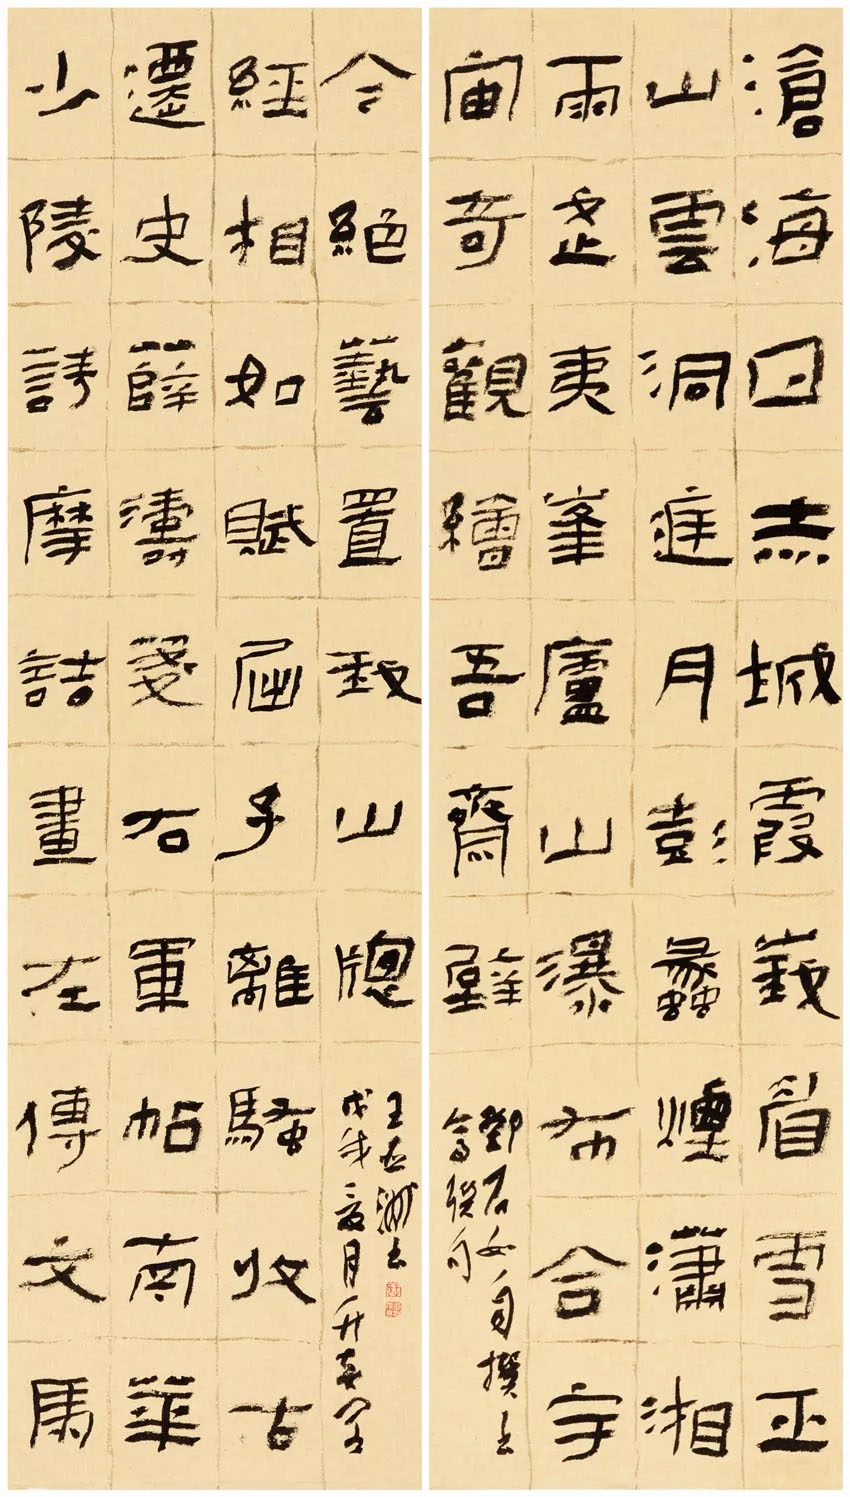 滄海日赤城霞峩眉雪巫
山雲洞庭月彭蠡煙瀟湘
雨武夷峯廬山瀑布合宇
宙奇觀繪吾齋壁
鄧石如自撰書
聯句
少陵詩摩詰畫左傳文馬
遷史薛濤箋右軍帖南華
經相如賦屈子離騷收古
今絕藝置我山牕
戊戌夏月